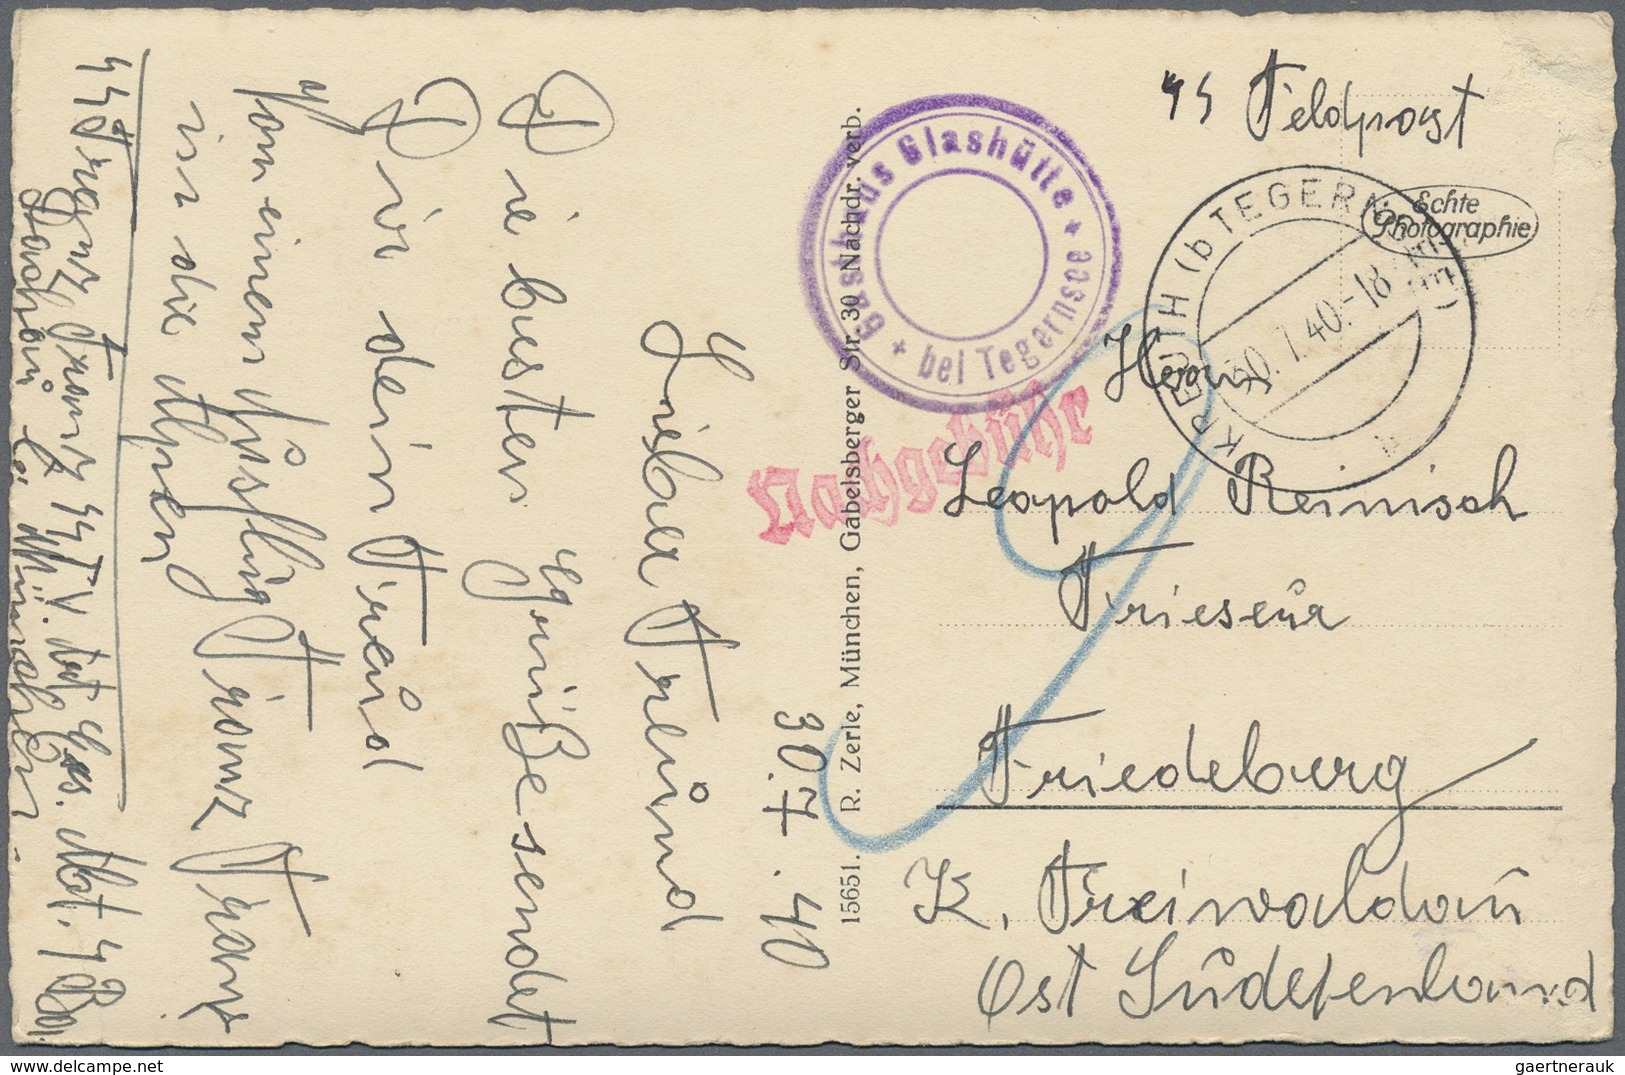 30.7.40
Lieber Freund
Die besten Grüße sendet
Dir dein Freund
Von einem Ausflug Franz Franz
in die Alpen
SS Franz, Franz
Dachau bei München.
15651. R. Zerle, München, Gabelsberger Str. 30 Nachdr. verb.
Gasthaus Glashütte
bei Tegernsee
Nachgebühr
SS Feldpost
Echte
Photographie
KREUTH (b TEGERNSEE)
30.7.40.-18
a
Herrn
Leopold Reinisch
Friseur
Friedeberg
K. Freiwaldau
Ost Sudetenland
gaertnerauk